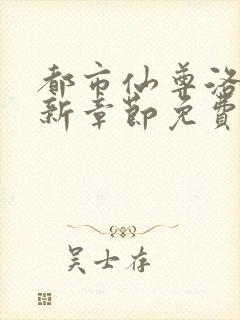 都市仙尊洛
新章节免费
吴士存